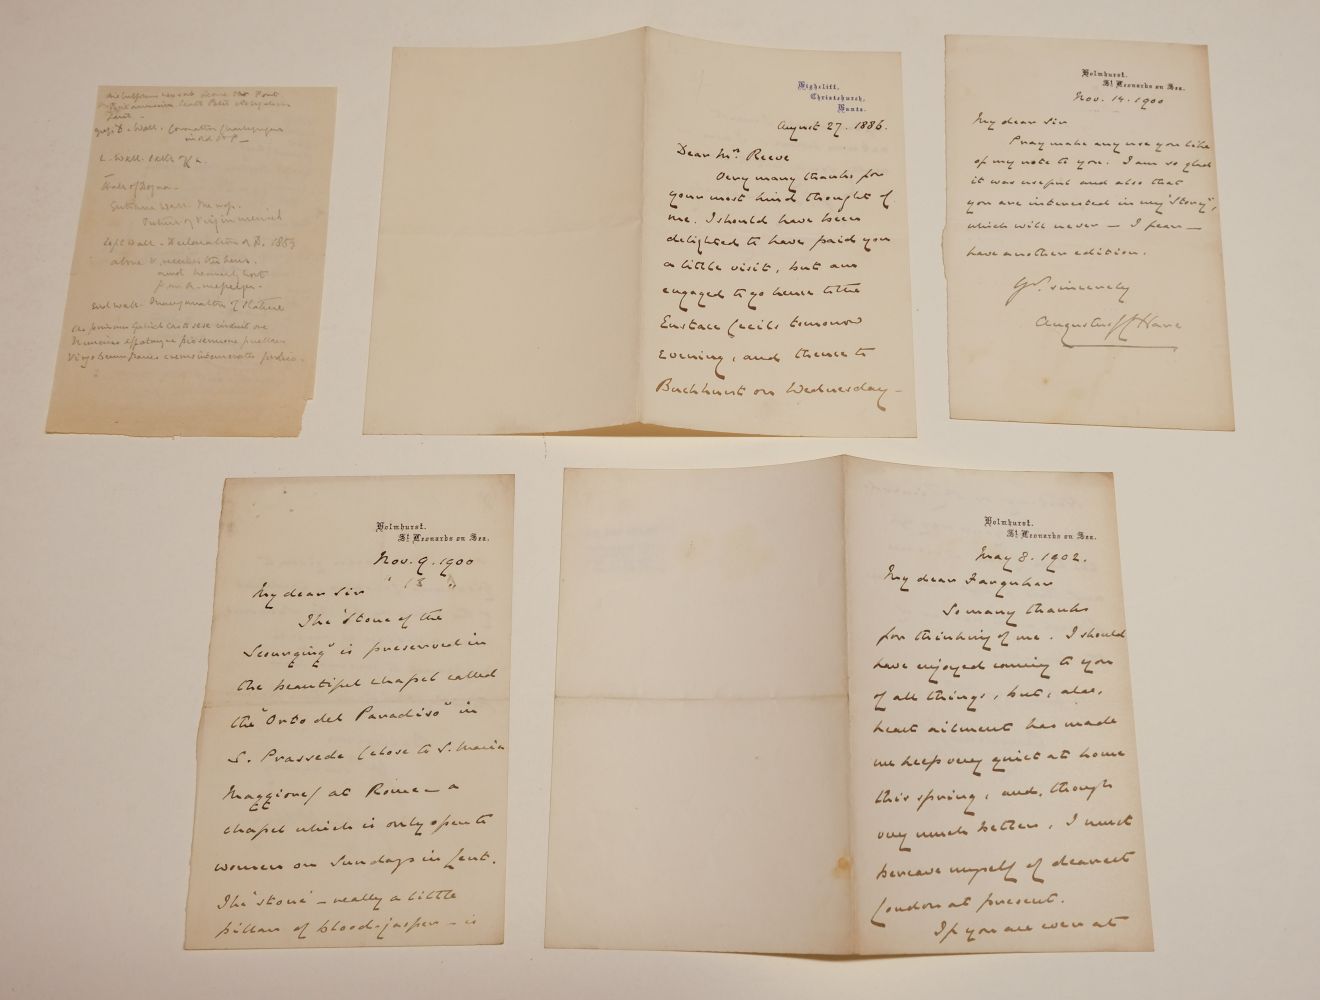 L. Wall.
Hall of Dogma.
Entrance Wall.
Left Wall. Declaration of
above
End Wall. Inauguration of Statue
Highcliff,
Christchurch,
Hants.
August 27. 1886.
Dear Mrs. Reeve
Very many thanks for
your most kind thought of
me. I should have been
delighted to have paid you
a little visit, but am
engaged to go hence to the
Eustace Cecils tomorrow
Evening, and thence to
Buckhurst on Wednesday—
Holmhurst.
St Leonards on Sea.
Nov. 14. 1900
My dear Sir
Pray make any use you like
of my note to you. I am so glad
it was useful and also that
you are interested in my "Story",
which will never — I fear —
have another edition.
Yrs. sincerely
Augustus J C Hare
Holmhurst.
St Leonards on Sea.
Nov. 9. 1900
My dear Sir
The "Stone of the
Scourging" is preserved in
the beautiful chapel called
the "Orto del Paradiso" in
S. Prassede (close to S. Maria
Maggiore) at Rome — a
chapel which is only open to
women on Sundays in Lent.
The "stone" — really a little
pillar of blood-jasper — is
Holmhurst.
St Leonards on Sea.
May 8. 1902.
My dear Farquhar
So many thanks
for thinking of me. I should
have enjoyed coming to you
of all things, but, alas,
heart ailment has made
me keep very quiet at home
this spring, and, though
very much better, I must
bereave myself of dearest
London at present.
If you are ever at